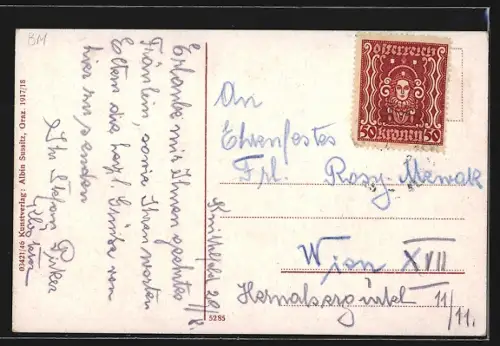 BM
Erlaube mir Ihnen geehrtes
Fräulein, sowie Ihren werten
Eltern die herzl. Grüße von
hier zu senden
Ihr Stefan
03421/46 Kunstverlag: Albin Sussitz, Graz 1917/18
5285
Österreich
50 Kronen 50
An
Ehrenfestes
Frl. Rosy
Wien XVII
Hernalsergürtel 11/11.